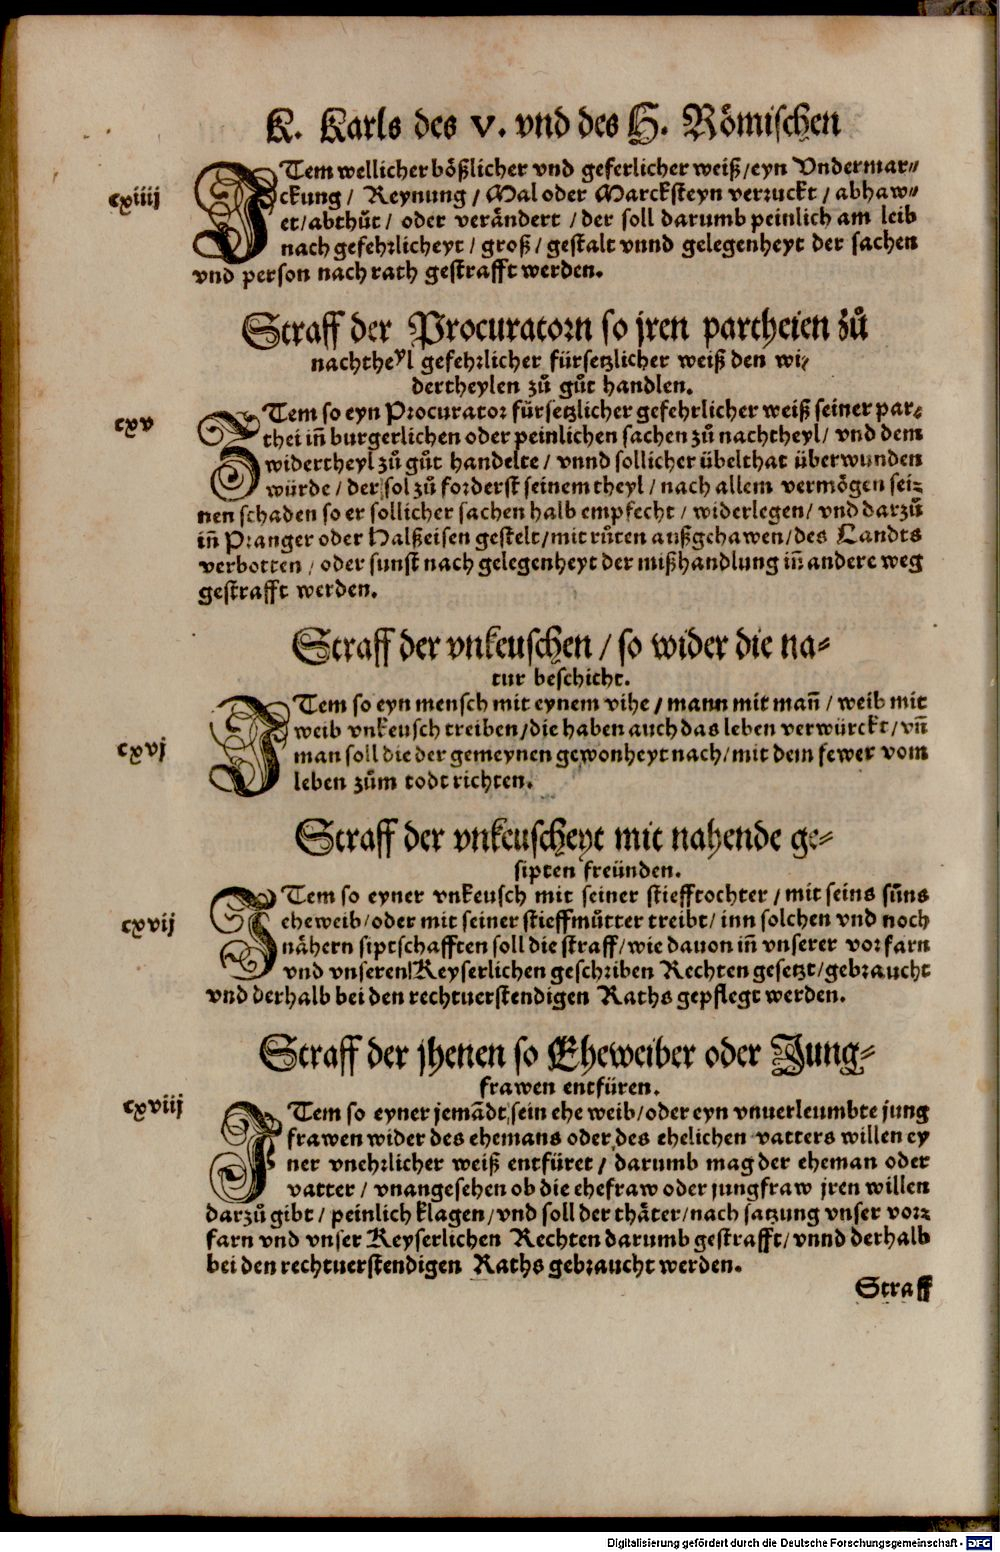 K. Karls des V. vnd des H. Römischen
cxiiij
ITem wellicher bößlicher vnd geferlicher weiß/eyn Vndermar⸗
ckung/ Reynung/ Mal oder Marcksteyn verruckt/ abhaw⸗
et/abthůt/ oder verändert/ der soll darumb peinlich am leib
nach gefehrlicheyt/ groß/ gestalt vnnd gelegenheyt der sachen
vnd person nach rath gestrafft werden.
Straff der Procuratorn so jren partheien zů
nachtheyl gefehrlicher fürsetzlicher weiß den wi⸗
dertheylen zů gůt handlen.
cxv
ITem so eyn Procurator fürsetzlicher gefehrlicher weiß seiner par⸗
thei iñ burgerlichen oder peinlichen sachen zů nachtheyl/ vnd dem
widertheyl zů gůt handelte/ vnnd sollicher übelthat überwunden
würde/ der sol zů forderst seinem theyl/ nach allem vermögen sei⸗
nen schaden so er sollicher sachen halb empfecht/ widerlegen/ vnd darzů
iñ Pranger oder Halßeisen gestelt/mit růten außgehawen/des Landts
verbotten/ oder sunst nach gelegenheyt der mißhandlung iñ andere weg
gestrafft werden.
Straff der vnkeuschen/ so wider die na⸗
tur beschicht.
cxvj
ITem so eyn mensch mit eynem vihe/ mann mit mañ/ weib mit
weib vnkeusch treiben/die haben auch das leben verwürckt/ vñ
man soll die der gemeynen gewonheyt nach/mit dem fewer vom
leben zům todt richten.
Straff der vnkeuscheyt mit nahende ge⸗
sipten freünden.
cxvij
ITem so eyner vnkeusch mit seiner stiefftochter/ mit seins sůns
eheweib/oder mit seiner stieffmůtter treibt/ inn solchen vnd noch
nähern siptschafften soll die straff/wie dauon iñ vnserer vorfarn
vnd vnseren Keyserlichen geschriben Rechten gesetzt/gebraucht
vnd derhalb bei den rechtuerstendigen Raths gepflegt werden.
Straff der jhenen so Eheweiber oder Jung⸗
frawen entfüren.
cxviij
ITem so eyner jemādt sein ehe weib/oder eyn vnuerleumbte jung
frawen wider des ehemans oder des ehelichen vatters willen ey
ner vnehrlicher weiß entfüret/ darumb mag der eheman oder
vatter/ vnangesehen ob die ehefraw oder jungfraw jren willen
darzů gibt/ peinlich klagen/vnd soll der thäter/nach satzung vnser vor⸗
farn vnd vnser Keyserlichen Rechten darumb gestrafft/ vnnd derhalb
bei den rechtuerstendigen Raths gebraucht werden.
Straff
Digitalisierung gefördert durch die Deutsche Forschungsgemeinschaft - DFG